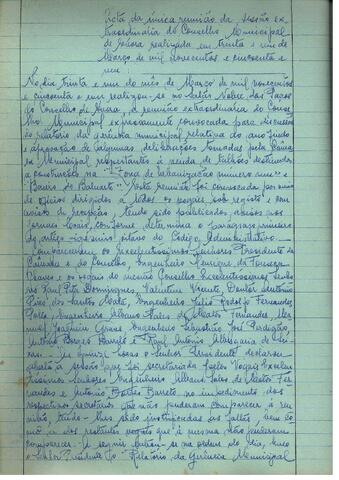 Acta da única reunião da sessão ex-
traordinária do Conselho Municipal
de Évora realizada em trinta e um de
Março de mil novecentos e cincoenta e
um
No dia trinta e um do mês de Março de mil novecentos
e cincoenta e um realizou-se no salão Nobre dos Paços
do Concelho de Évora, a reunião extraordinária do Conse-
lho Municipal expressamente convocada para discussão
do relatório da gerência municipal relativa do ano findo
e apreciação de algumas deliberações tomadas pela Câmara
Municipal respeitantes à venda de talhões destinados
a construções na "Zona de urbanização número um" e
"Bairro do Baluarte". Esta reunião foi convocada por meio
de ofícios dirigidos a todos os vogais, sob registo e com
aviso de recepção, tendo sido publicados avisos nos
jornais locais, conforme determina o parágrafo primeiro
do artigo vigésimo oitavo do Código Administrativo.
Compareceram os Excelentíssimos Senhores Presidente da
Câmara e do Conselho, Engenheiro Henrique da Fonseca
Chaves, e os vogais do mesmo Conselho Excelentíssimos Senho-
res Raul Pita Dominguez, Valentim Vicente, Doutor António
Pires dos Santos Mata, Engenheiro Júlio Rodolfo Fernandes
Potes, Engenheiro Albano Sales de Mattos Fernandes,
Joaquim Engenheiro Sebastião José Perdigão,
António Borges Barreto e Raul António
horas o Senhor Presidente declarou
aberta a sessão que foi secretariada pelos Vogais Excelen-
tíssimos Senhores Engenheiro Albano Sales de Mattos Fer-
nandes e António Borges Barreto no impedimento dos
respectivos secretários que não puderam comparecer à reu-
nião, tendo-lhes sido justificadas as faltas, bem co-
mo a dos restantes vogais que à mesma não puderam
comparecer. A seguir entrou-se na ordem do dia, tendo
o Senhor Presidente do "Relatório da Gerência Municipal